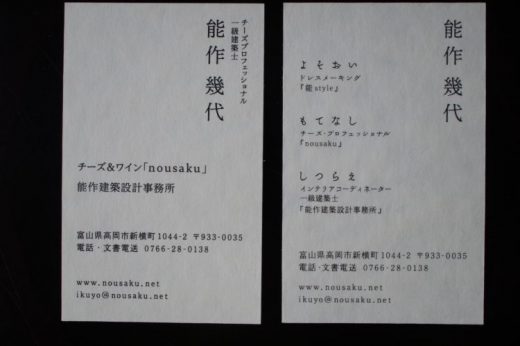 能作 幾代
チーズプロフェッショナル
一級建築士
チーズ&ワイン「nousaku」
能作建築設計事務所
富山県高岡市新横町1044-2 〒933-0035
電話・文書電送 0766-28-0138
www.nousaku.net
ikuyo@nousaku.net
能作 幾代
よそおい
ドレスメーキング
『能style』
もてなし
チーズ・プロフェッショナル
『nousaku』
しつらえ
インテリアコーディネーター
一級建築士
『能作建築設計事務所』
富山県高岡市新横町1044-2 〒933-0035
電話・文書電送 0766-28-0138
www.nousaku.net
ikuyo@nousaku.net